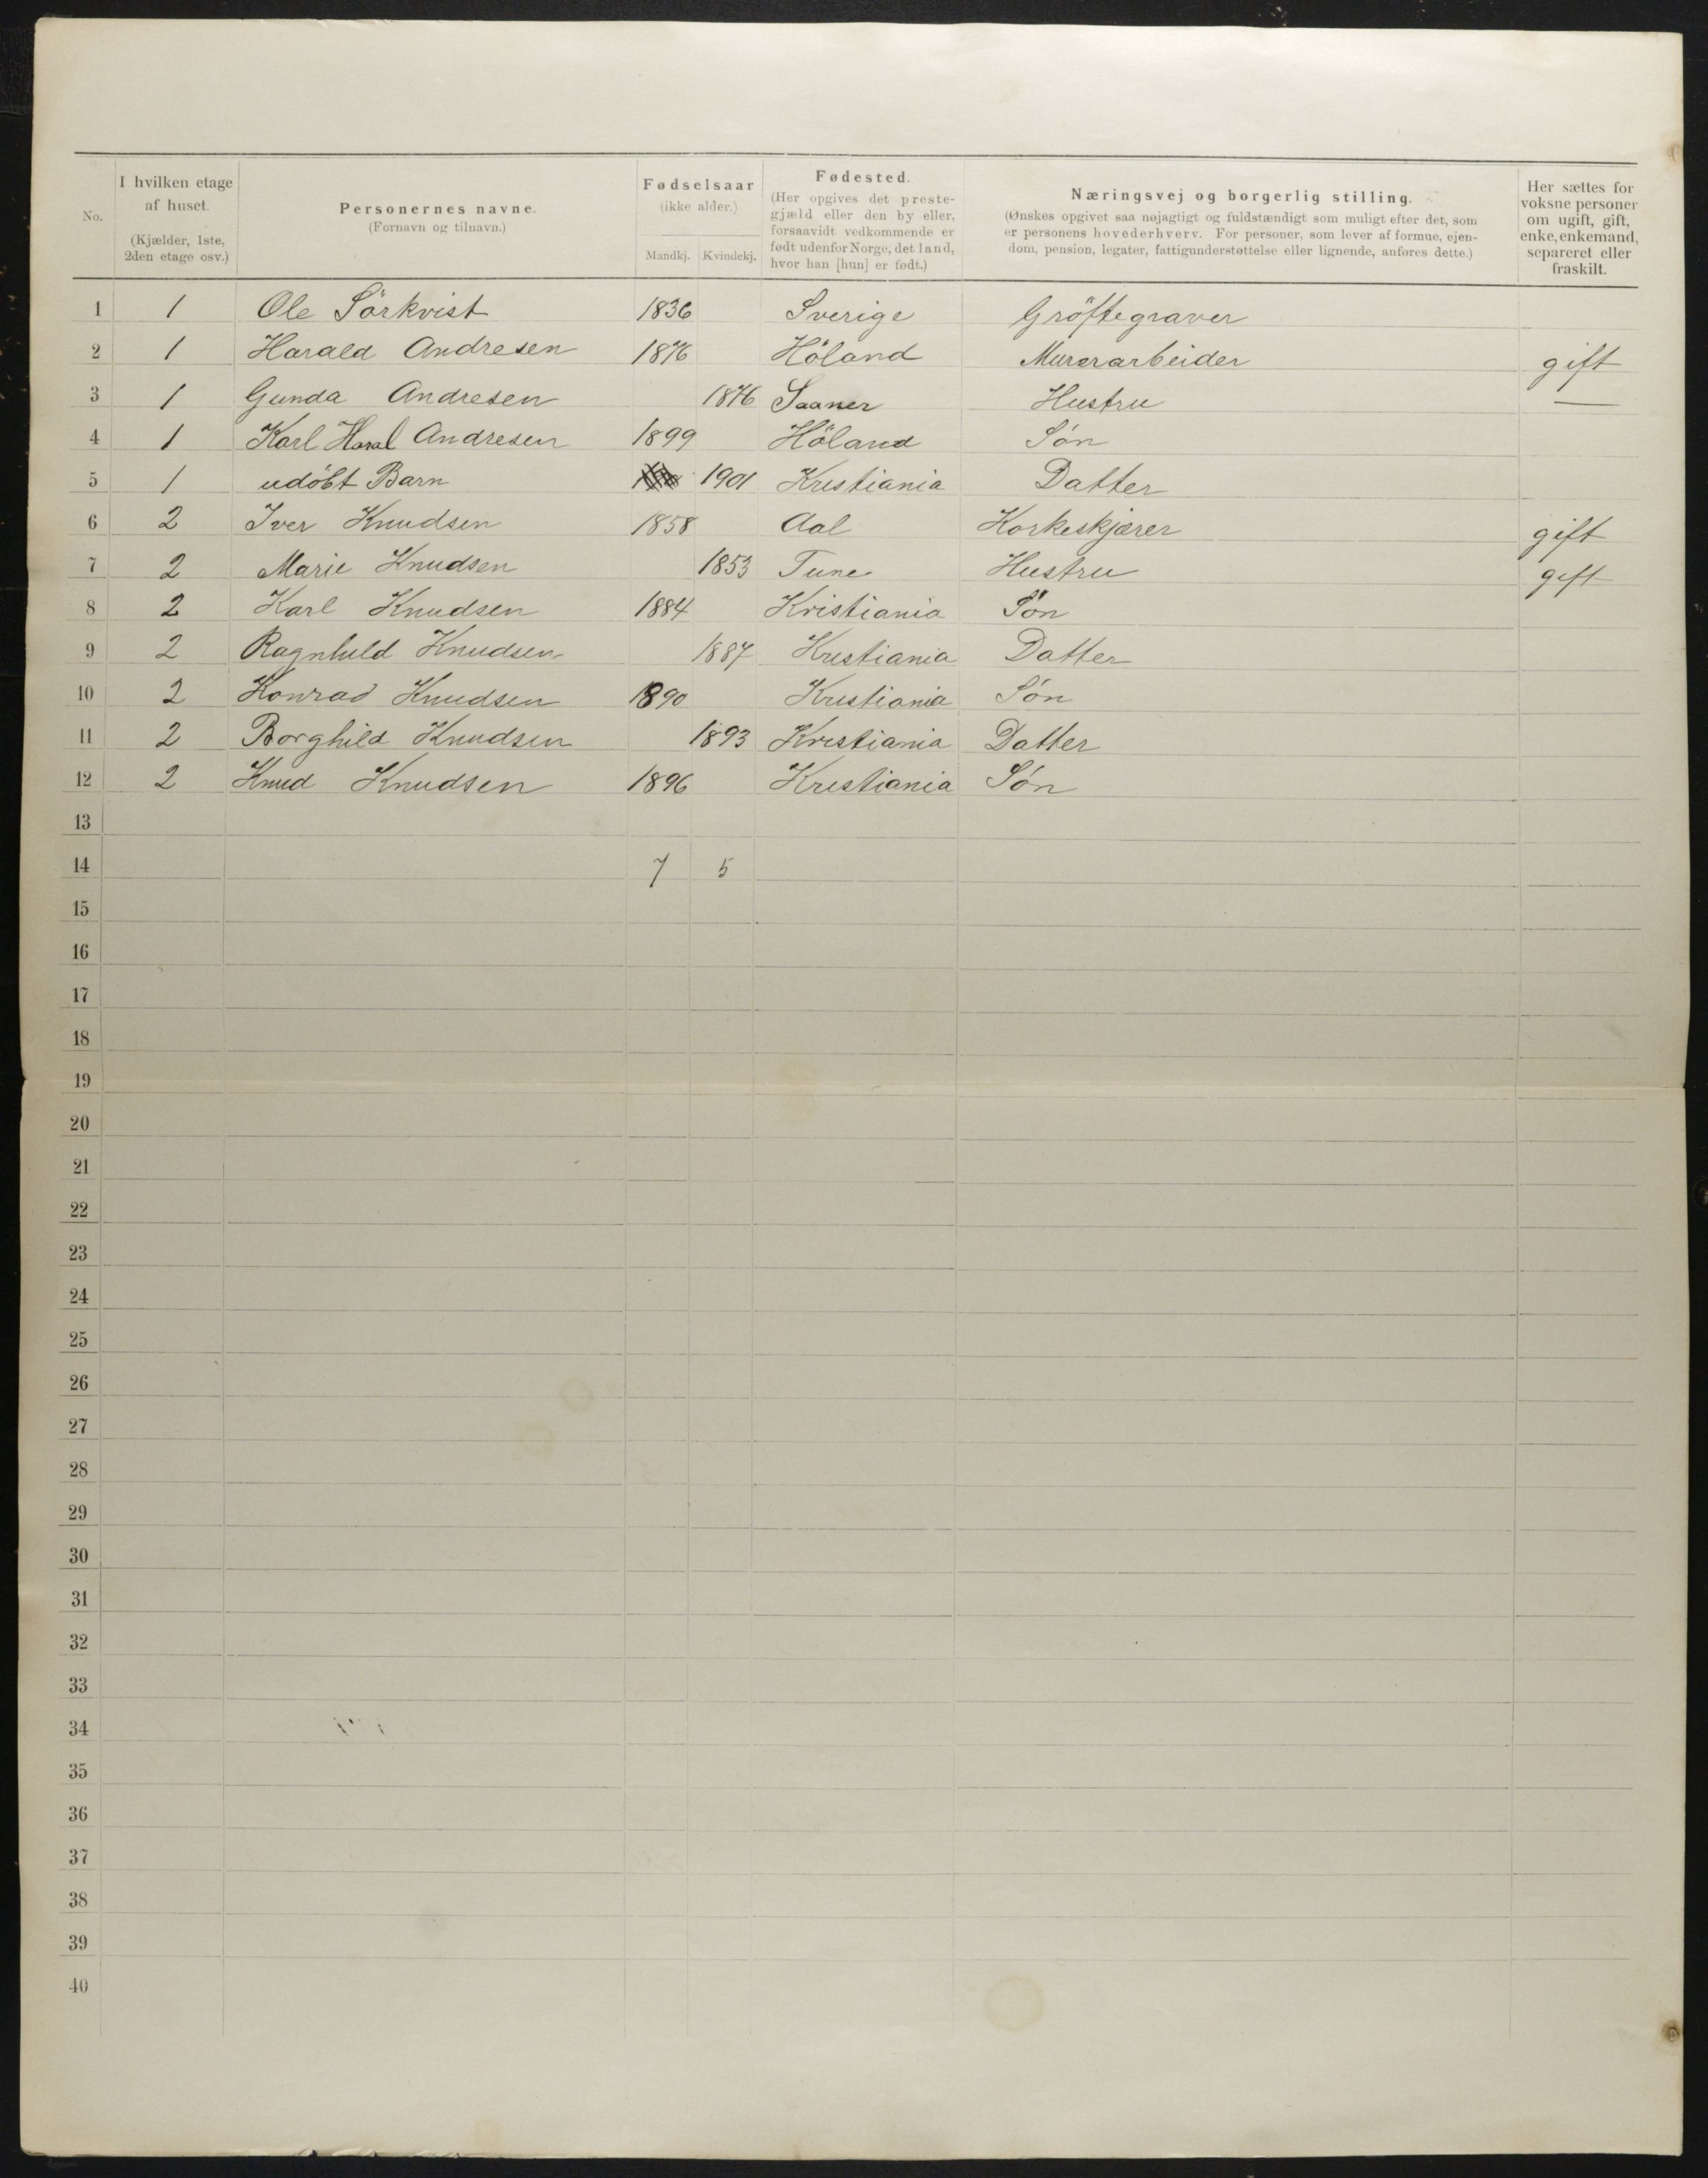 No.
I hvilken etage af huset.
(Kjælder, 1ste, 2den etage osv.)
Personernes navne.
(Fornavn og tilnavn.)
Fødselsaar
(ikke alder.)
Mandkj. Kvindekj.
Fødested.
(Her opgives det preste-
gjæld eller den by eller,
forsaavidt vedkommende er
født udenfor Norge, det land,
hvor han [hun] er født.)
Næringsvej og borgerlig stilling.
(Ønskes opgivet saa nøjagtigt og fuldstændigt som muligt efter det, som
er personens hovederhverv. For personer, som lever af formue, ejen-
dom, pension, legater, fattigunderstøttelse eller lignende, anføres dette.)
Her sættes for
voksne personer
om ugift, gift,
enke, enkemand,
separeret eller
fraskilt.
1 1 Ole Sörkvist 1836 Sverige Gröftegraver
2 1 Harald Andresen 1876 Höland Murerarbeider gift
3 1 Gunda Andresen 1876 Saaner Hustru —
4 1 Karl Haral Andresen 1899 Höland Søn
5 1 udøbt Barn 1901 Kristiania Datter
6 2 Iver Knudsen 1858 Aal Korkeskjærer gift
7 2 Marie Knudsen 1853 Tune Hustru gift
8 2 Karl Knudsen 1884 Kristiania Søn
9 2 Ragnhild Knudsen 1887 Kristiania Datter
10 2 Konrad Knudsen 1890 Kristiania Søn
11 2 Borghild Knudsen 1893 Kristiania Datter
12 2 Knud Knudsen 1896 Kristiania Søn
13
14 7 5
15
16
17
18
19
20
21
22
23
24
25
26
27
28
29
30
31
32
33
34
35
36
37
38
39
40